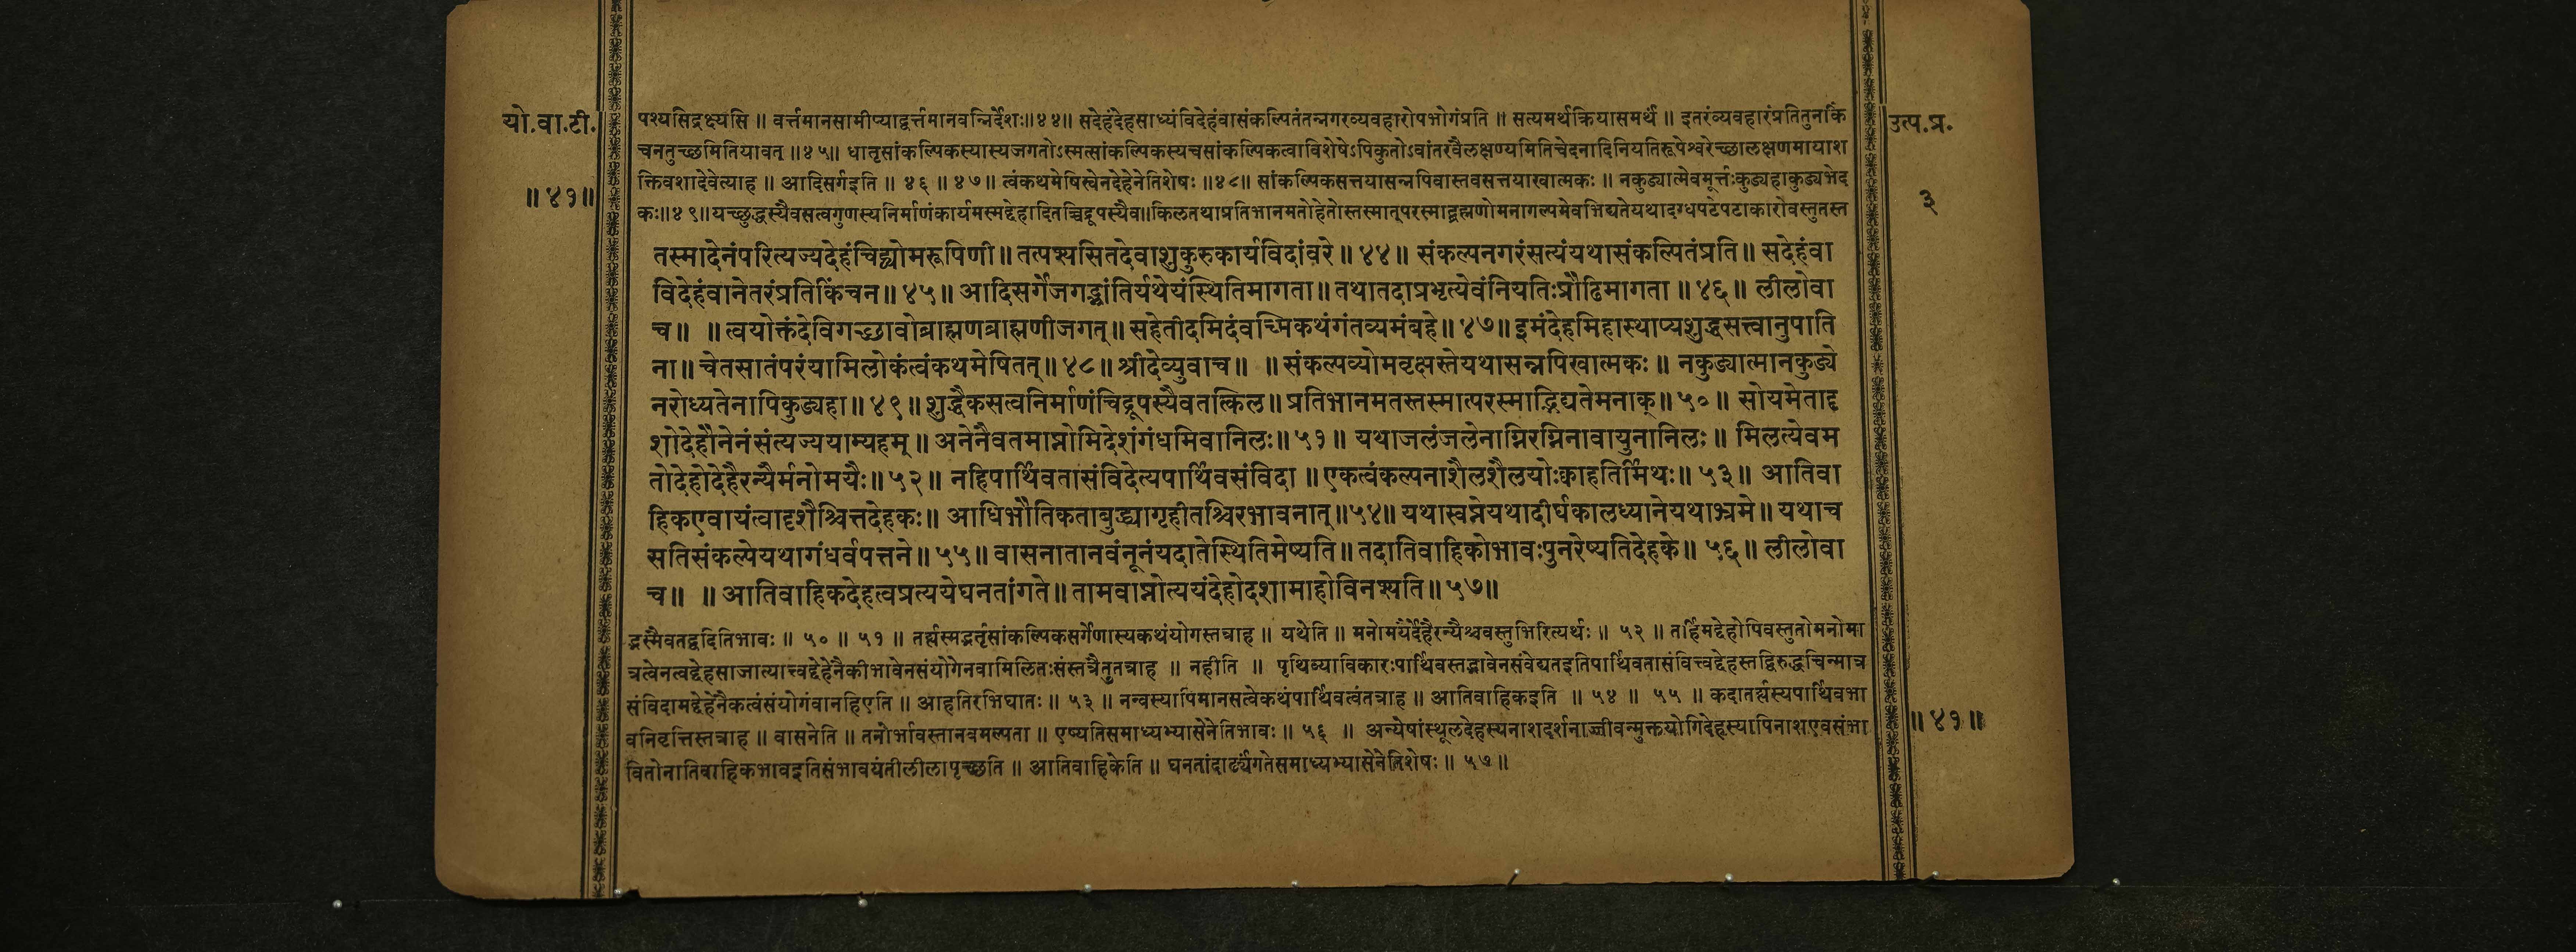 यो.वा.टी.
॥४१॥
पश्यसिद्रक्ष्यसि ॥ वर्त्तमानसामीप्याद्वर्त्तमानवन्निर्देशः॥४४॥ सदेहंदेहसाध्यंविदेहंवासंकल्पितंतन्नगरव्यवहारोपभोगंप्रति ॥ सत्यमर्थक्रियासमर्थं ॥ इतरंव्यवहारंप्रतितुनकिं
चनतुच्छमितियावत् ॥४५॥ धातृसांकल्पिकस्यास्यजगतोऽस्मत्सांकल्पिकस्यचसांकल्पिकत्वाविशेषेऽपिकुतोऽवांतरवैलक्षण्यमितिचेदनादिनियतिरूपेश्वरेच्छालक्षणमायाश
क्तिवशादेवेत्याह ॥ आदिसर्गइति ॥ ४६ ॥ ४७॥ त्वंकथमेषिस्वेनदेहेनेतिशेषः ॥४८॥ सांकल्पिकसत्तयासन्नपिवास्तवसत्तयाखात्मकः ॥ नकुड्यात्मेवमूर्त्तःकुड्यहाकुड्यभेद
कः॥४९॥यच्छुद्धस्यैवसत्वगुणस्यनिर्माणंकार्यमस्मद्देहादितच्चिद्रूपस्यैव॥किलतथाप्रतिभानमतोहेतोस्तस्मात्परस्माद्ब्रह्मणोमनागल्पमेवभिद्यतेयथादग्धपटेपटाकारोवस्तुतस्त
तस्मादेनंपरित्यज्यदेहंचिद्व्योमरूपिणी॥ तत्पश्यसितदेवाशुकुरुकार्यविदांवरे॥४४॥ संकल्पनगरंसत्यंयथासंकल्पितंप्रति॥ सदेहंवा
विदेहंवानेतरंप्रतिकिंचन॥४५॥ आदिसर्गेजगद्भ्रांतिर्यथेयंस्थितिमागता॥ तथातदाप्रभृत्येवंनियतिःप्रौढिमागता ॥४६॥ लीलोवा
च॥ ॥ त्वयोक्तंदेविगच्छावोब्राह्मणब्राह्मणीजगत्॥ सहेतीदमिदंवच्मिकथंगंतव्यमंबहे॥४७॥ इमंदेहमिहास्थाप्यशुद्धसत्त्वानुपाति
ना॥ चेतसातंपरंयामिलोकंत्वंकथमेषितत्॥४८॥ श्रीदेव्युवाच॥ ॥ संकल्पव्योमवृक्षस्तेयथासन्नपिखात्मकः॥ नकुड्यात्मानकुड्ये
नरोध्यतेनापिकुड्यहा॥४९॥ शुद्धैकसत्वनिर्माणंचिद्रूपस्यैवतत्किल॥ प्रतिभानमतस्तस्मात्परस्माद्भिद्यतेमनाक्॥५०॥ सोयमेतादृ
शोदेहोनेनंसंत्यज्ययाम्यहम्॥ अनेनैवतमाप्नोमिदेशंगंधमिवानिलः॥५१॥ यथाजलंजलेनाग्निरग्निनावायुनानिलः॥ मिलत्येवम
तोदेहोदेहैरन्यैर्मनोमयैः॥५२॥ नहिपार्थिवतासंविदेत्यपार्थिवसंविदा ॥ एकत्वंकल्पनाशैलशैलयोःक्वाहतिर्मिथः॥५३॥ आतिवा
हिकएवायंत्वादृशैश्चित्तदेहकः॥ आधिभौतिकताबुद्ध्यागृहीतश्चिरभावनात्॥५४॥ यथास्वप्नेयथादीर्घकालध्यानेयथाभ्रमे॥ यथाच
सतिसंकल्पेयथागंधर्वपत्तने॥५५॥ वासनातानवंनूनंयदातेस्थितिमेष्यति॥ तदातिवाहिकोभावःपुनरेष्यतिदेहके॥५६॥ लीलोवा
च॥ ॥ आतिवाहिकदेहत्वप्रत्ययेघनतांगते॥ तामवाप्नोत्ययंदेहोदशामाहोविनश्यति॥५७॥
द्भस्मैवतद्वदितिभावः ॥ ५० ॥ ५१ ॥ तर्ह्यस्मद्भर्तृसांकल्पिकसर्गेणास्यकथंयोगस्तत्राह ॥ यथेति ॥ मनोमयैर्देहैरन्यैश्चवस्तुभिरित्यर्थः ॥ ५२ ॥ तर्हिमद्देहोपिवस्तुतोमनोमा
त्रत्वेनत्वद्देहसाजात्यात्त्वद्देहेनैकीभावेनसंयोगेनवामिलितःसंस्तत्रैतुतत्राह ॥ नहीति ॥ पृथिव्याविकारःपार्थिवस्तद्भावेनसंवेद्यतइतिपार्थिवतासंवित्त्वद्देहस्तद्विरुद्धचिन्मात्र
संविदामद्देहेनैकत्वंसंयोगंवानहिएति ॥ आहतिरभिघातः ॥ ५३ ॥ नन्वस्यापिमानसत्वेकथंपार्थिवत्वंतत्राह ॥ आतिवाहिकइति ॥ ५४ ॥ ५५ ॥ कदातर्ह्यस्यपार्थिवभा
वनिवृत्तिस्तत्राह ॥ वासनेति ॥ तनोर्भावस्तानवमल्पता ॥ एष्यतिसमाध्यभ्यासेनेतिभावः ॥ ५६ ॥ अन्येषांस्थूलदेहस्यनाशदर्शनाज्जीवन्मुक्तयोगिदेहस्यापिनाशएवसंभा
वितोनातिवाहिकभावइतिसंभावयंतीलीलापृच्छति ॥ आतिवाहिकेति ॥ घनतांदार्ढ्यंगतेसमाध्यभ्यासेनेतिशेषः ॥ ५७॥
उत्प.प्र.
३
॥४१॥